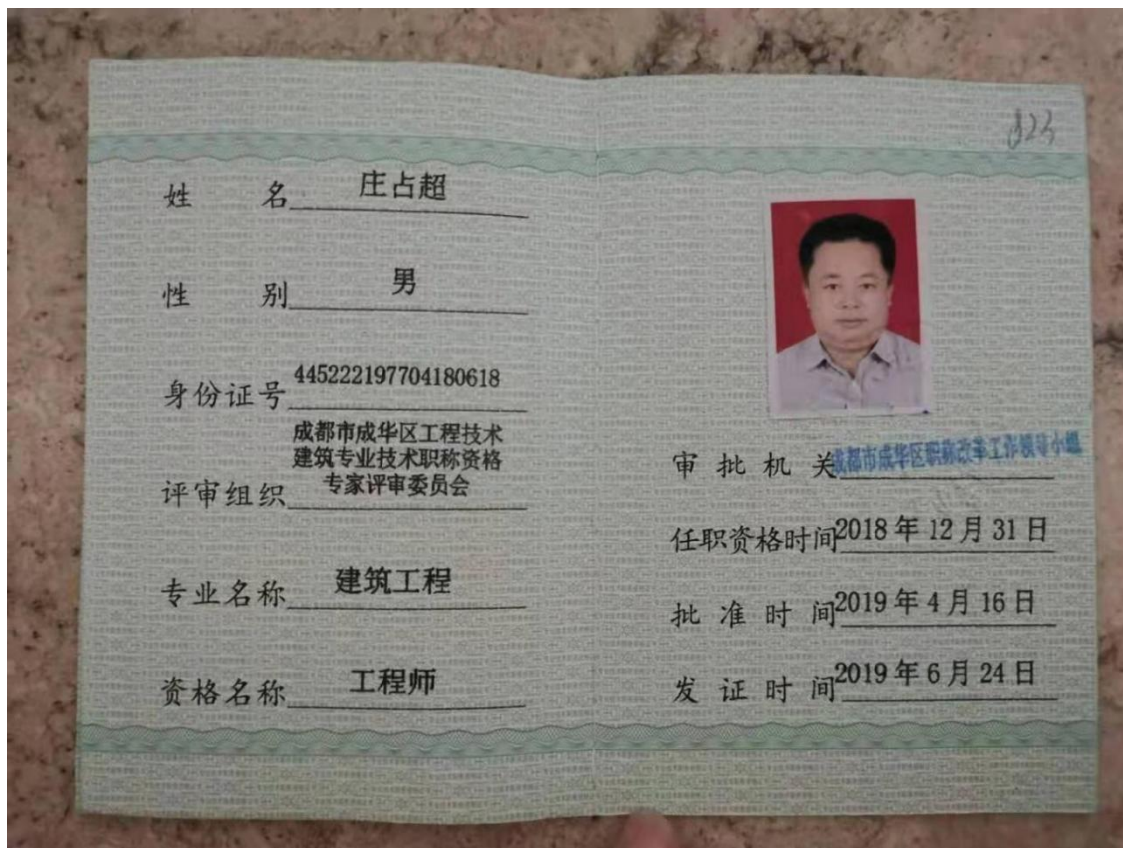 姓名 庄占超
性别 男
身份证号 445222197704180618
成都市成华区工程技术
建筑专业技术职称资格
评审组织 专家评审委员会
专业名称 建筑工程
资格名称 工程师
123
审批机关 成都市成华区职称改革工作领导小组
任职资格时间 2018年12月31日
批准时间 2019年4月16日
发证时间 2019年6月24日